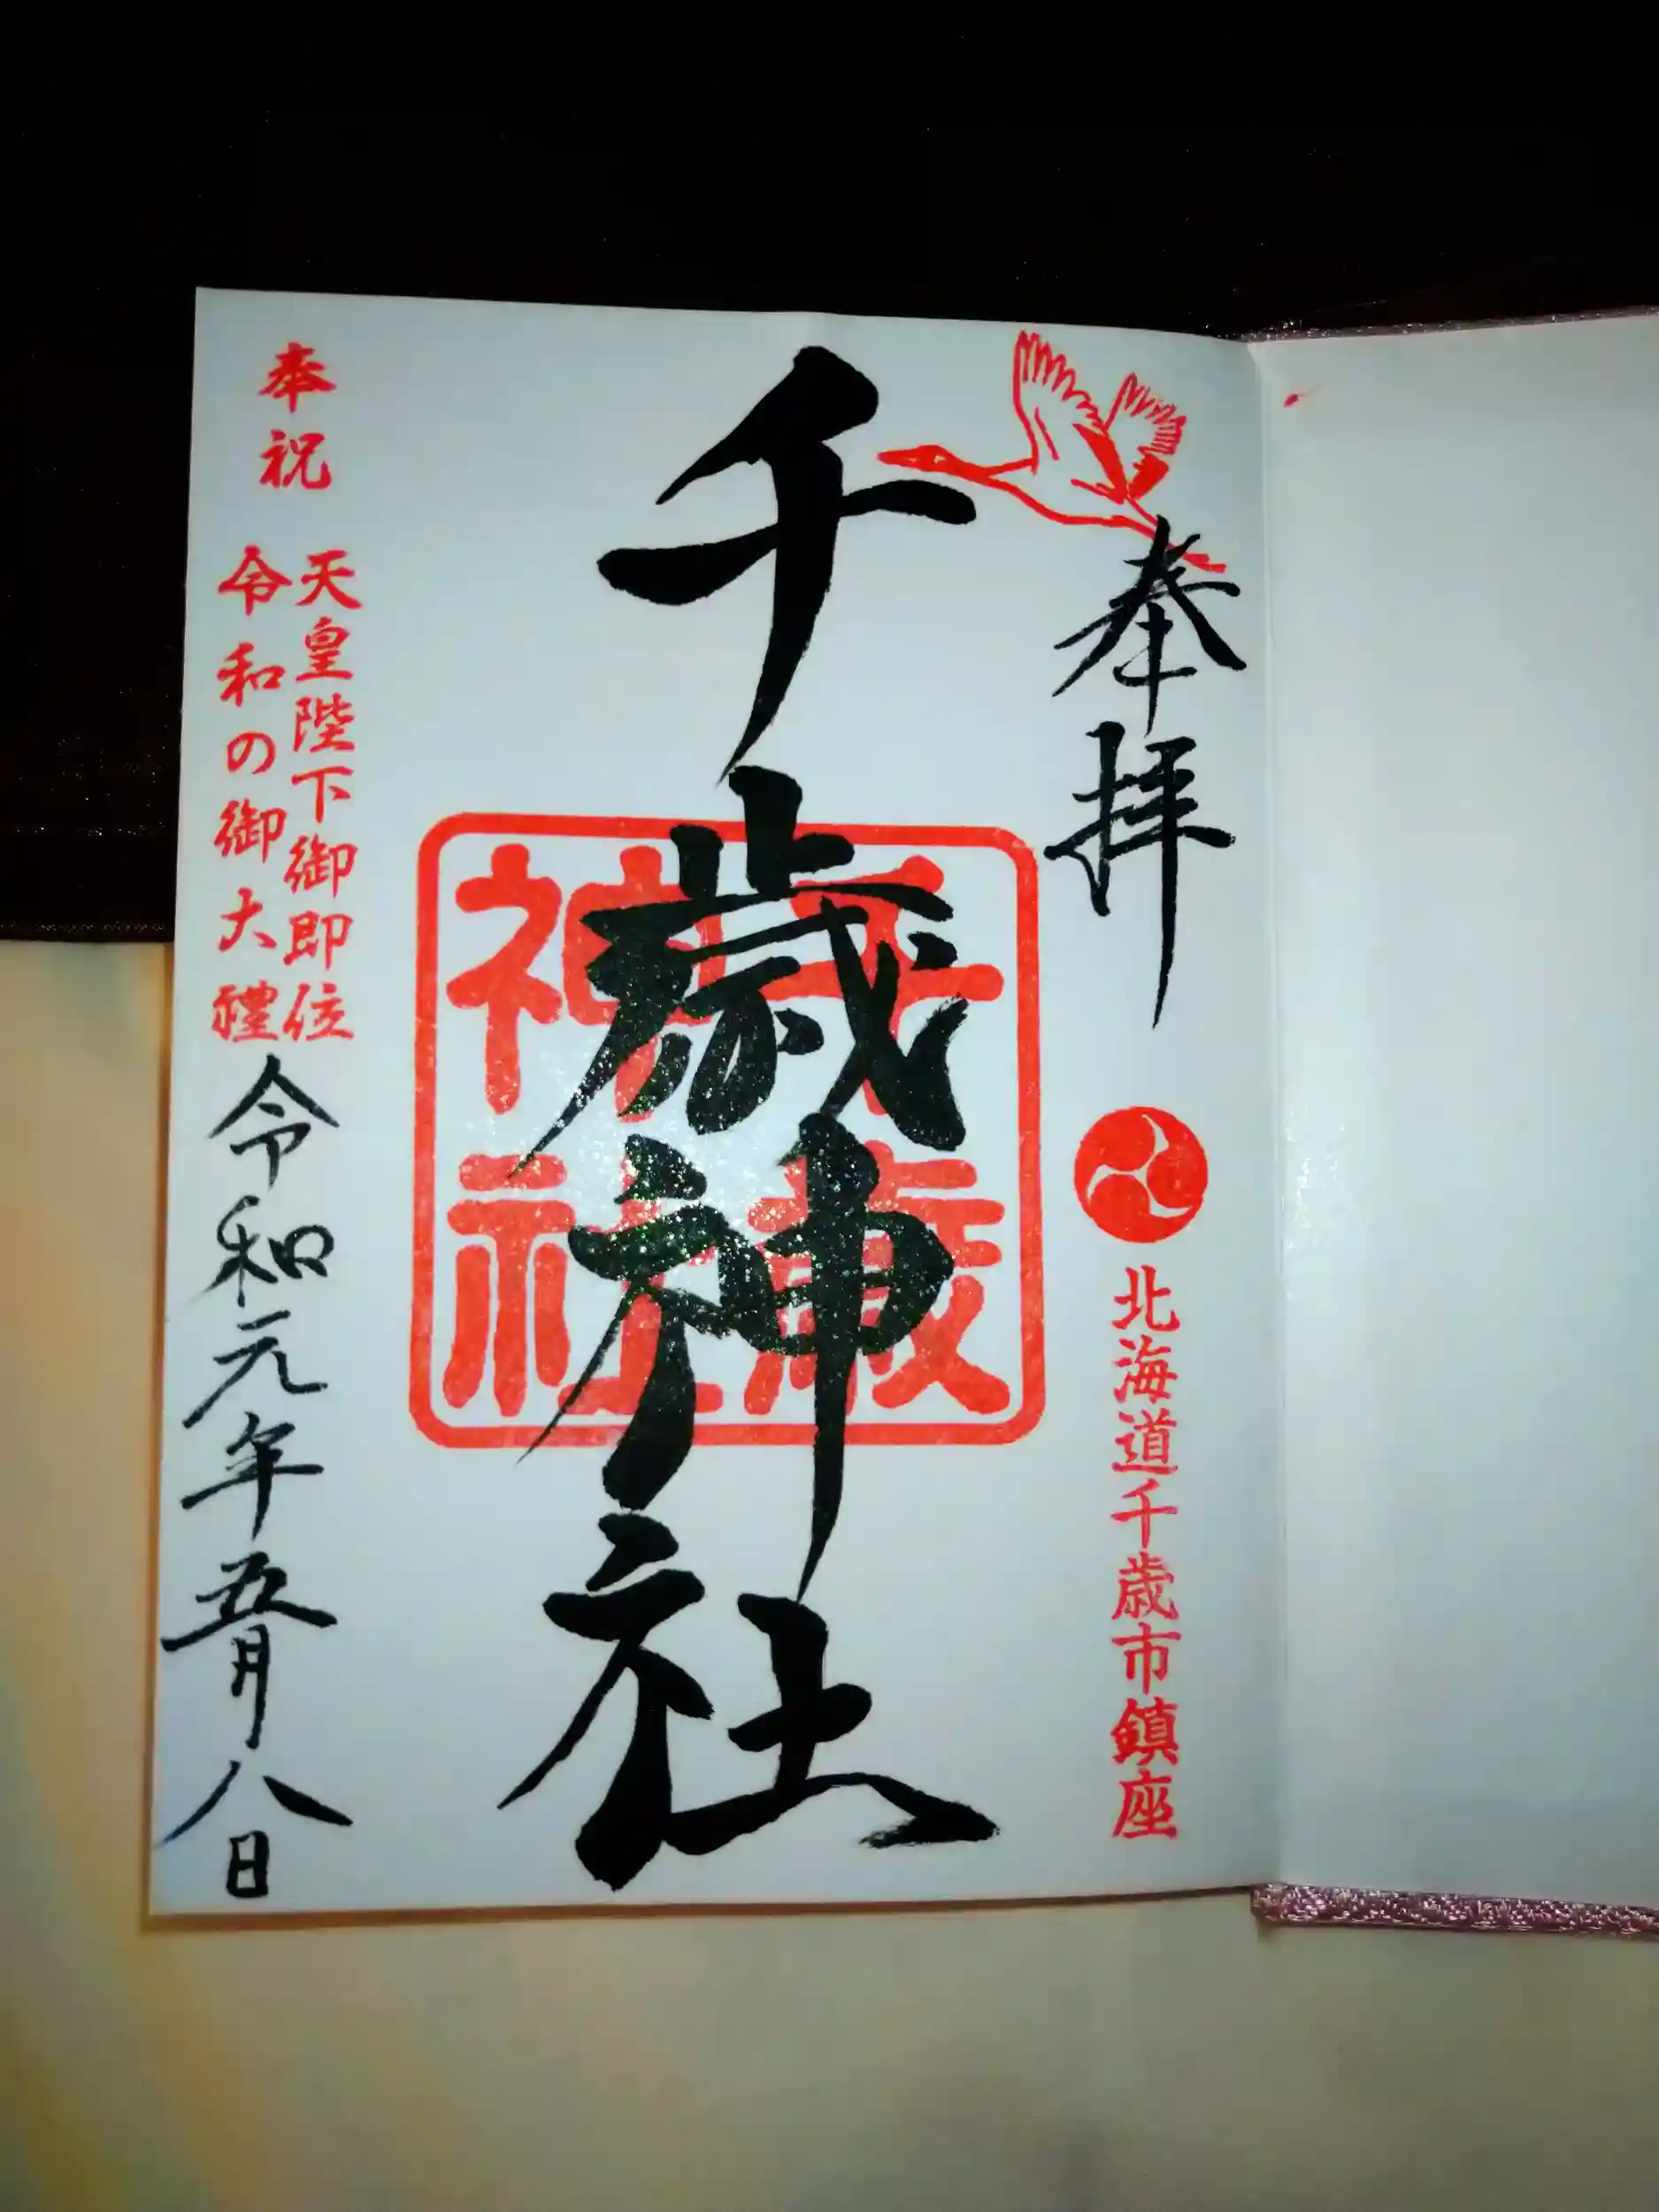 奉拝
北海道千歳市鎮座
千歳神社
千歳
神社
奉祝
天皇陛下御即位
令和の御大禮
令和元年五月八日